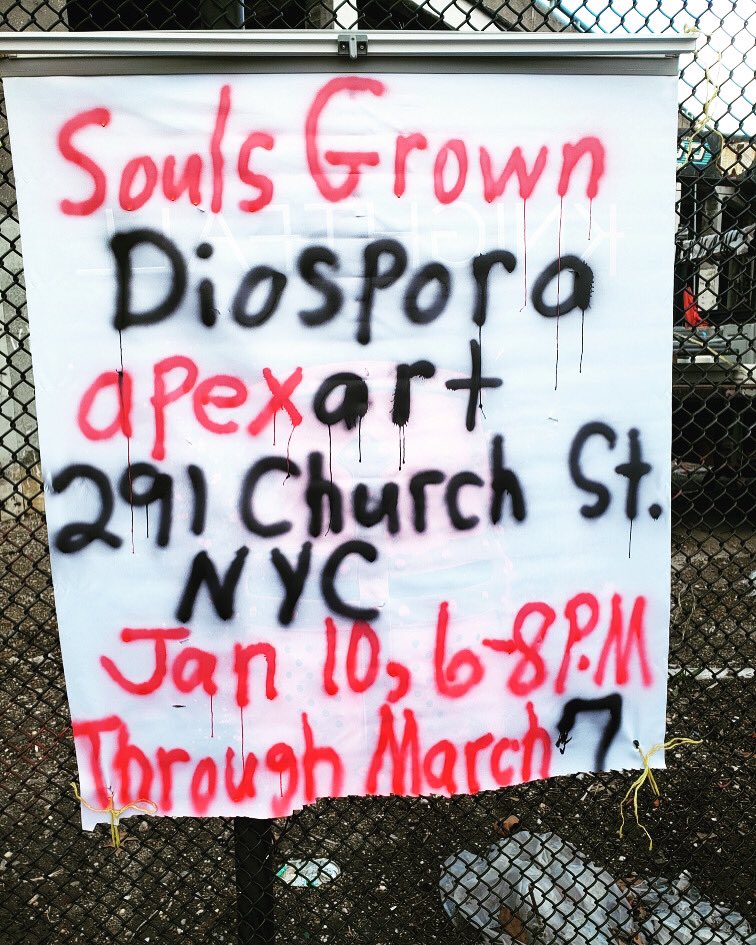 Souls Grown
Diospora
apexart
291 Church St.
NYC
Jan 10, 6-8 P.M
Through March 7